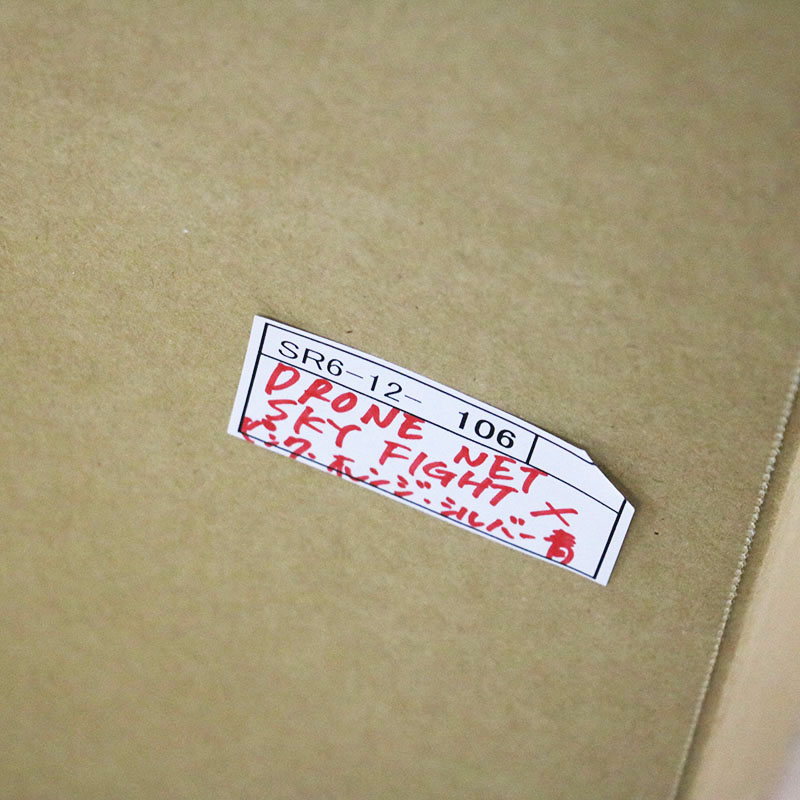 SR6-12- 106
DRONE NET
SKY FIGHT X
ピンク・オレンジ・シルバー青